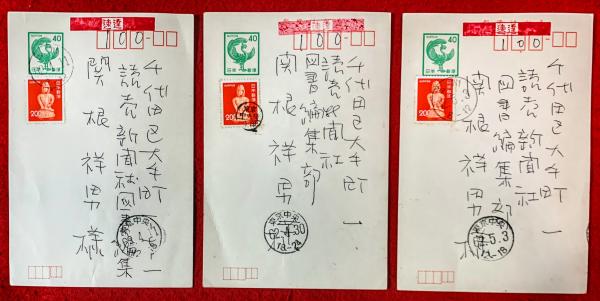 速達
100-
40
日本郵便
200
千代田区大手町一
読売新聞社図書編集
関根祥男様
速達
100-
40
日本郵便
200
千代田区大手町一
読売新聞社
図書編集部
関根祥男
東京中央
4.30
18-24
速達
100-
40
日本郵便
200
千代田区大手町一
読売新聞社
図書編集部
関根祥男様
東京中央
5.3
12-18